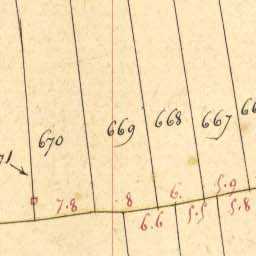 670 669 668 667
7.8 8 6. 5.9
6.6 5.5 5.8